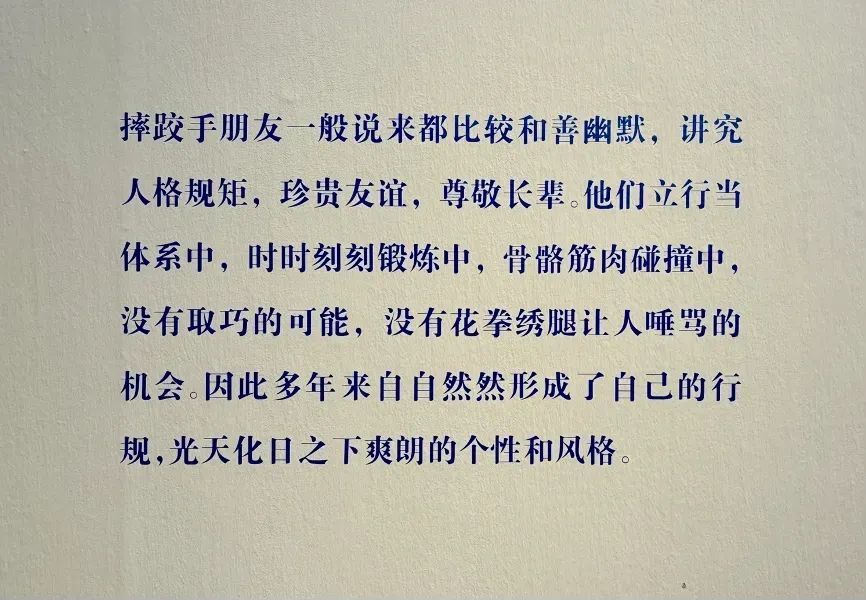 摔跤手朋友一般说来都比较和善幽默，讲究
人格规矩，珍贵友谊，尊敬长辈。他们立行当
体系中，时时刻刻锻炼中，骨骼筋肉碰撞中，
没有取巧的可能，没有花拳绣腿让人唾骂的
机会。因此多年来自自然然形成了自己的行
规，光天化日之下爽朗的个性和风格。